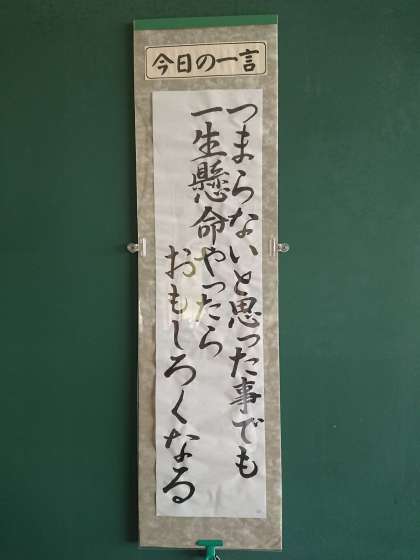 今日の一言
つまらないと思った事でも
一生懸命やったら
おもしろくなる